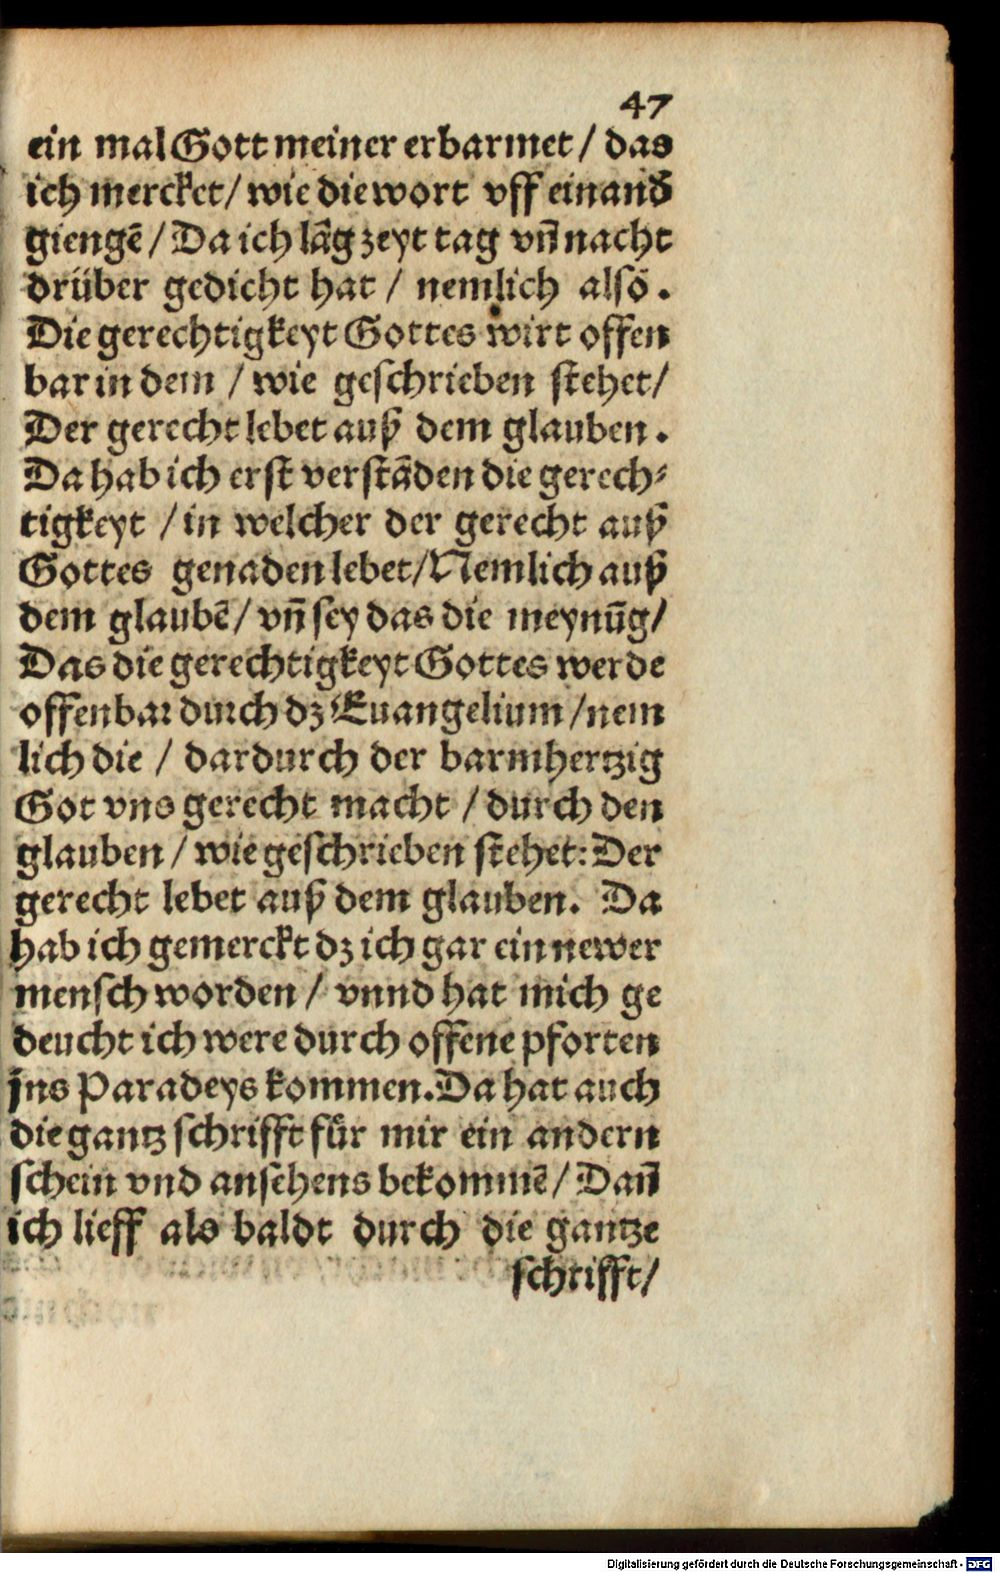 47
ein mal Gott meiner erbarmet / das
ich mercket / wie die wort vff einand̄
giengē / Da ich lãg zeyt tag vñ nacht
drüber gedicht hat / nemlich alsō.
Die gerechtigkeyt Gottes wirt offen
bar in dem / wie geschrieben stehet /
Der gerecht lebet auß dem glauben.
Da hab ich erst verstãden die gerech⸗
tigkeyt / in welcher der gerecht auß
Gottes genaden lebet / Nemlich auß
dem glaubē / vñ sey das die meynūg /
Das die gerechtigkeyt Gottes werde
offenbar durch dz Euangelium / nem
lich die / dardurch der barmhertzig
Got vns gerecht macht / durch den
glauben / wie geschrieben stehet: Der
gerecht lebet auß dem glauben. Da
hab ich gemerckt dz ich gar ein newer
mensch worden / vnnd hat mich ge
deucht ich were durch offene pforten
jns Paradeys kommen. Da hat auch
die gantz schrifft für mir ein andern
schein vnd ansehens bekommē / Dañ
ich lieff als baldt durch die gantze
schrifft /
Digitalisierung gefördert durch die Deutsche Forschungsgemeinschaft - DFG